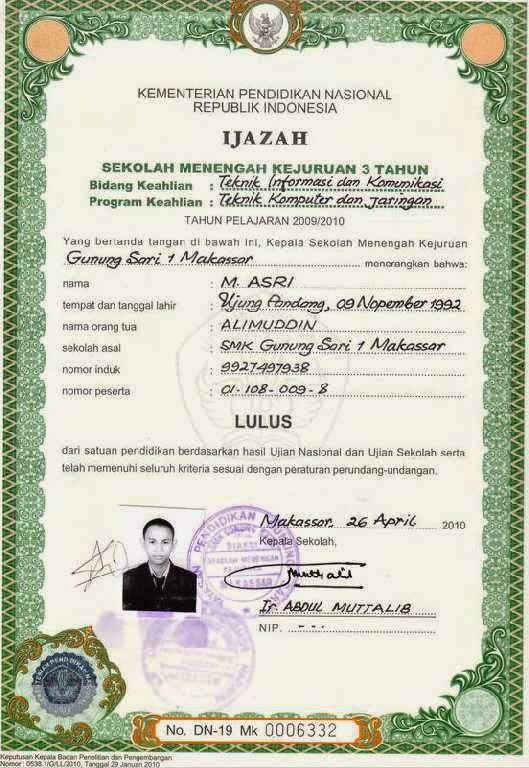 KEMENTERIAN PENDIDIKAN NASIONAL
REPUBLIK INDONESIA
IJAZAH
SEKOLAH MENENGAH KEJURUAN 3 TAHUN
Bidang Keahlian : Teknik Informasi dan Komunikasi
Program Keahlian : Teknik Komputer dan Jaringan
TAHUN PELAJARAN 2009/2010
Yang bertanda tangan di bawah ini, Kepala Sekolah Menengah Kejuruan
Gunung Sari 1 Makassar menerangkan bahwa:
nama : M. ASRI
tempat dan tanggal lahir : Ujung Pandang, 09 Nopember 1992
nama orang tua : ALIMUDDIN
sekolah asal : SMK Gunung Sari 1 Makassar
nomor induk : 9927497938
nomor peserta : 01-108-009-8
LULUS
dari satuan pendidikan berdasarkan hasil Ujian Nasional dan Ujian Sekolah serta
telah memenuhi seluruh kriteria sesuai dengan peraturan perundang-undangan.
Makassar, 26 April 2010
Kepala Sekolah,
Muttalib
Ir ABDUL MUTTALIB
NIP. - - -
No. DN-19 Mk 0006332
Keputusan Kepala Badan Penelitian dan Pengembangan
Tanggal 29 Januari 2010